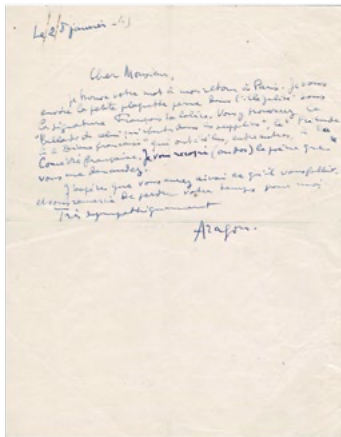 Le 28 janvier - 45
Cher Monsieur,
je trouve votre mot à mon retour à Paris. Je vous
envoie la petite plaquette parue dans l'illégalité sous
la signature François la Colère. Vous y trouverez la
"Ballade de celui qui chanta dans les supplices", le
à à la
Comédie française. Je vous recopie (au dos) le poème que
vous me demandez.
J'espère que vous aurez ainsi ce qu'il vous fallait,
de perdre votre temps pour moi
Très sympathiquement
Aragon.